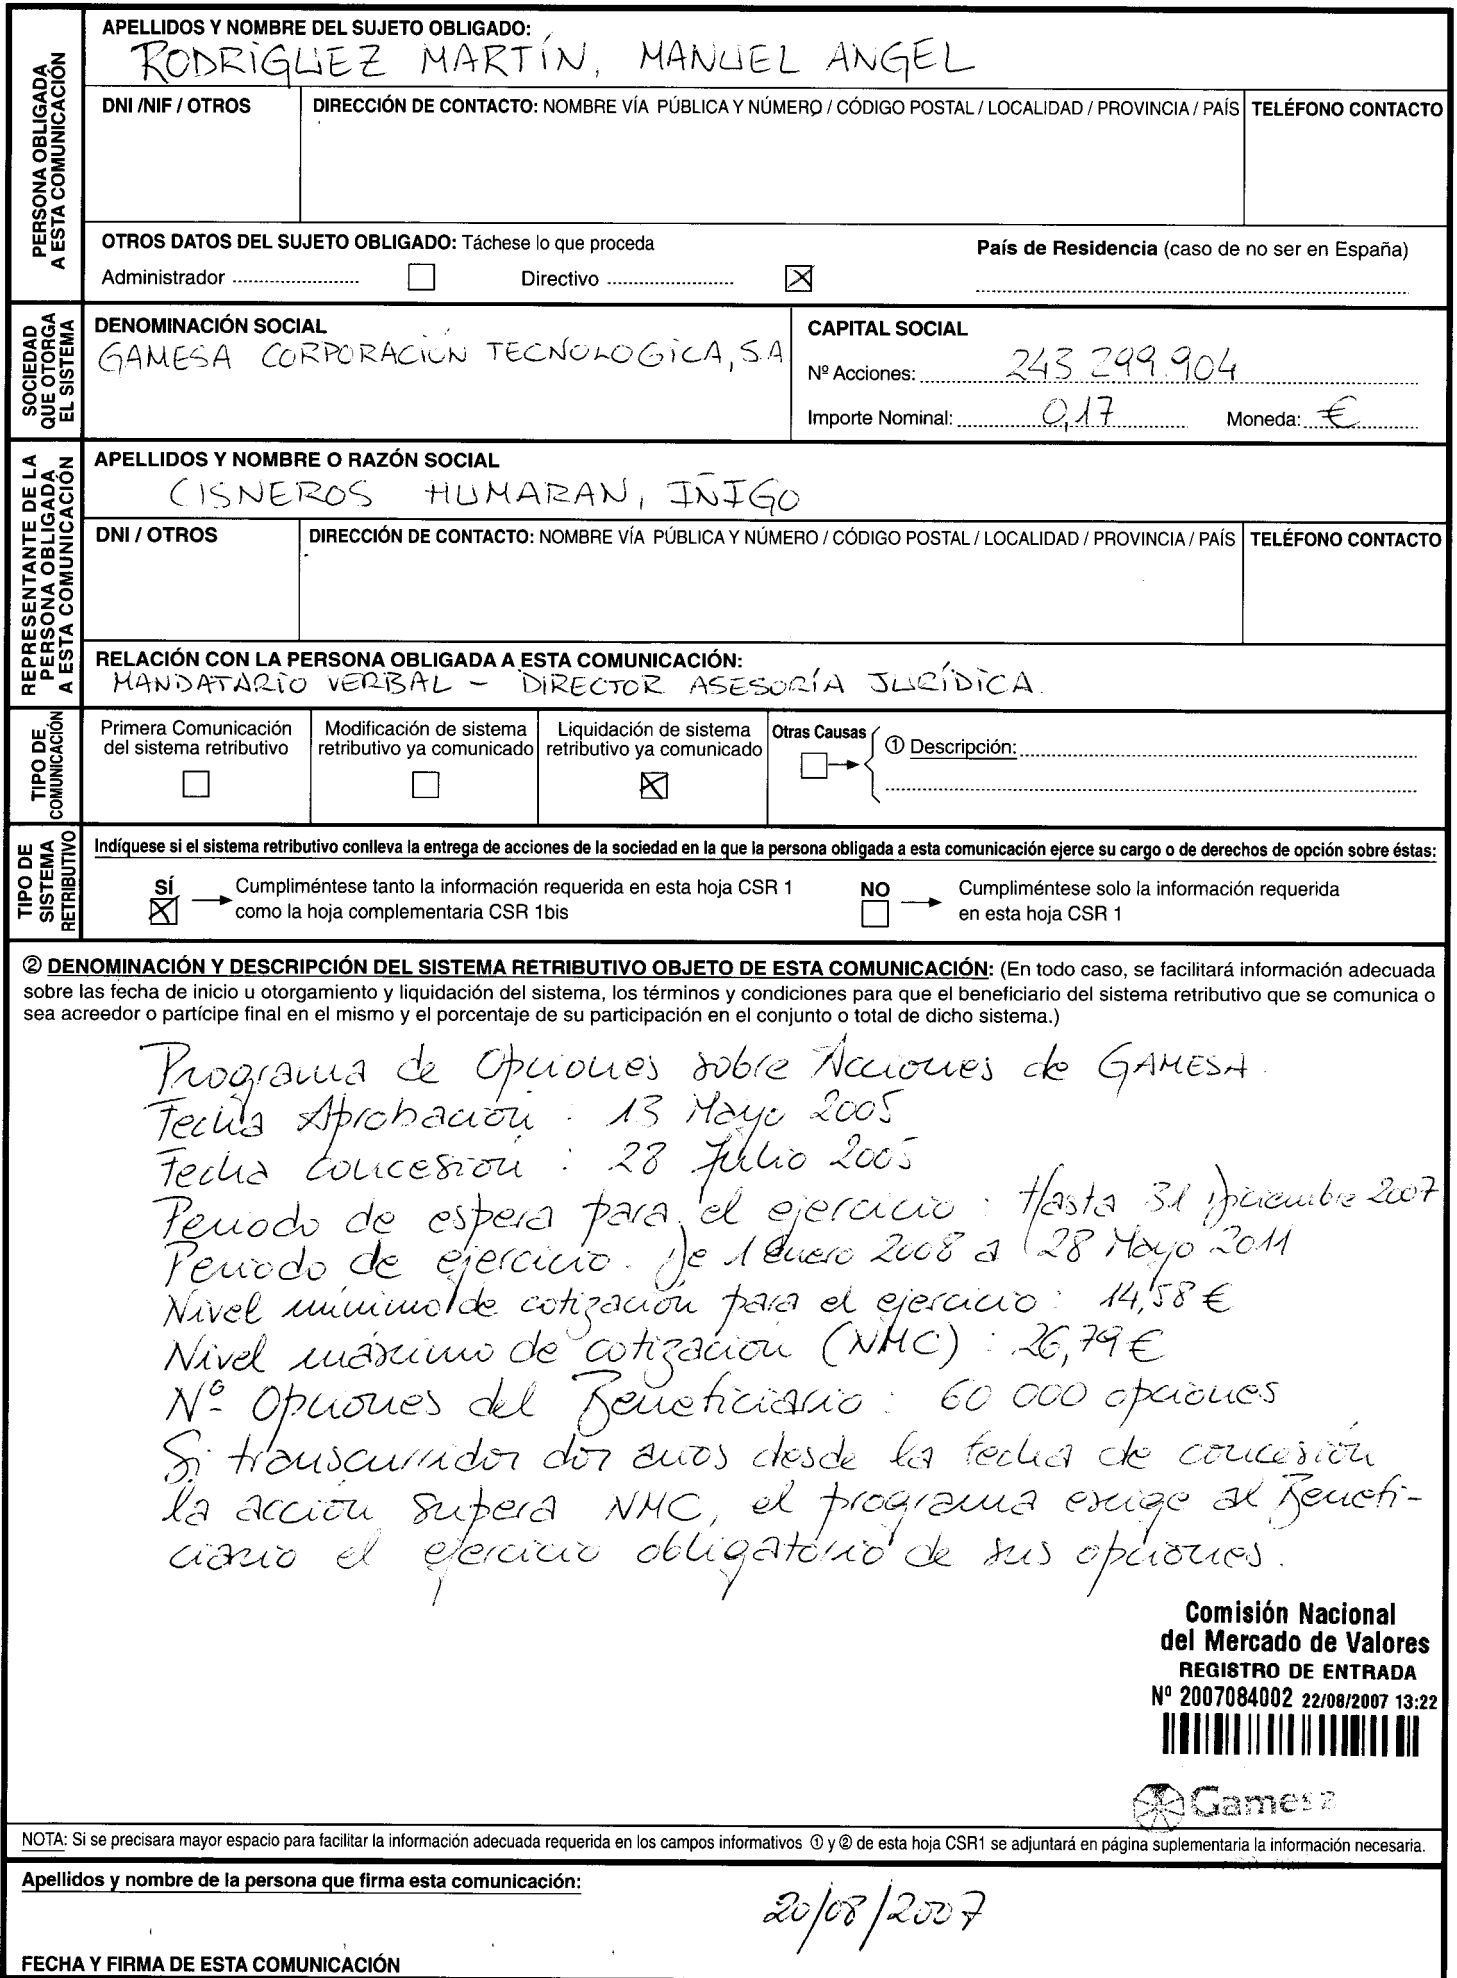 PERSONA OBLIGADA
A ESTA COMUNICACIÓN
APELLIDOS Y NOMBRE DEL SUJETO OBLIGADO:
RODRÍGUEZ MARTÍN, MANUEL ANGEL
DNI /NIF / OTROS
DIRECCIÓN DE CONTACTO: NOMBRE VÍA PÚBLICA Y NÚMERO / CÓDIGO POSTAL / LOCALIDAD / PROVINCIA / PAÍS
TELÉFONO CONTACTO
OTROS DATOS DEL SUJETO OBLIGADO: Táchese lo que proceda
País de Residencia (caso de no ser en España)
Administrador
Directivo
SOCIEDAD
QUE OTORGA
EL SISTEMA
DENOMINACIÓN SOCIAL
GAMESA CORPORACIÓN TECNOLOGICA, S.A
CAPITAL SOCIAL
Nº Acciones: 243.299.904
Importe Nominal: 0,17 Moneda: €
REPRESENTANTE DE LA
PERSONA OBLIGADA
A ESTA COMUNICACIÓN
APELLIDOS Y NOMBRE O RAZÓN SOCIAL
CISNEROS HUMARAN, IÑIGO
DNI / OTROS
DIRECCIÓN DE CONTACTO: NOMBRE VÍA PÚBLICA Y NÚMERO / CÓDIGO POSTAL / LOCALIDAD / PROVINCIA / PAÍS
TELÉFONO CONTACTO
RELACIÓN CON LA PERSONA OBLIGADA A ESTA COMUNICACIÓN:
MANDATARIO VERBAL - DIRECTOR ASESORÍA JURÍDICA.
TIPO DE
COMUNICACIÓN
Primera Comunicación
del sistema retributivo
Modificación de sistema
retributivo ya comunicado
Liquidación de sistema
retributivo ya comunicado
Otras Causas
① Descripción:
TIPO DE
SISTEMA
RETRIBUTIVO
Indíquese si el sistema retributivo conlleva la entrega de acciones de la sociedad en la que la persona obligada a esta comunicación ejerce su cargo o de derechos de opción sobre éstas:
SÍ
Cumpliméntese tanto la información requerida en esta hoja CSR 1
como la hoja complementaria CSR 1bis
NO
Cumpliméntese solo la información requerida
en esta hoja CSR 1
② DENOMINACIÓN Y DESCRIPCIÓN DEL SISTEMA RETRIBUTIVO OBJETO DE ESTA COMUNICACIÓN: (En todo caso, se facilitará información adecuada
sobre las fecha de inicio u otorgamiento y liquidación del sistema, los términos y condiciones para que el beneficiario del sistema retributivo que se comunica o
sea acreedor o partícipe final en el mismo y el porcentaje de su participación en el conjunto o total de dicho sistema.)
Programa de Opciones sobre Acciones de GAMESA.
Fecha Aprobación : 13 Mayo 2005
Fecha concesión : 28 Julio 2005
Periodo de espera para el ejercicio : Hasta 31 Diciembre 2007
Periodo de ejercicio. De 1 Enero 2008 a 28 Mayo 2011
Nivel mínimo de cotización para el ejercicio : 14,58 €
Nivel máximo de cotización (NMC) : 26,79 €
Nº Opciones del Beneficiario : 60 000 opciones
Si transcurridos dos años desde la fecha de concesión
la acción supera NMC, el programa exige al Benefi-
ciario el ejercicio obligatorio de sus opciones.
Comisión Nacional
del Mercado de Valores
REGISTRO DE ENTRADA
Nº 2007084002 22/08/2007 13:22
Gamesa
NOTA: Si se precisara mayor espacio para facilitar la información adecuada requerida en los campos informativos ① y ② de esta hoja CSR1 se adjuntará en página suplementaria la información necesaria.
Apellidos y nombre de la persona que firma esta comunicación:
20/08/2007
FECHA Y FIRMA DE ESTA COMUNICACIÓN